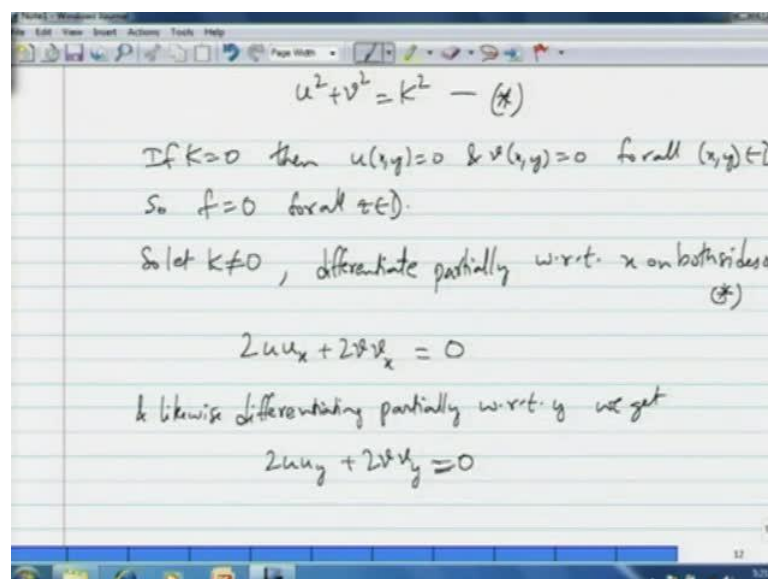 Note1 - Windows Journal
File Edit View Insert Actions Tools Help
Page Width
u² + v² = k² — (*)
If k=0 then u(x,y)=0 & v(x,y)=0 for all (x,y)∈D
So f=0 for all z∈D.
So let k≠0, differentiate partially w.r.t. x on both sides o
(*)
2uuₓ + 2vvₓ = 0
& likewise differentiating partially w.r.t. y we get
2uu_y + 2vv_y = 0
12